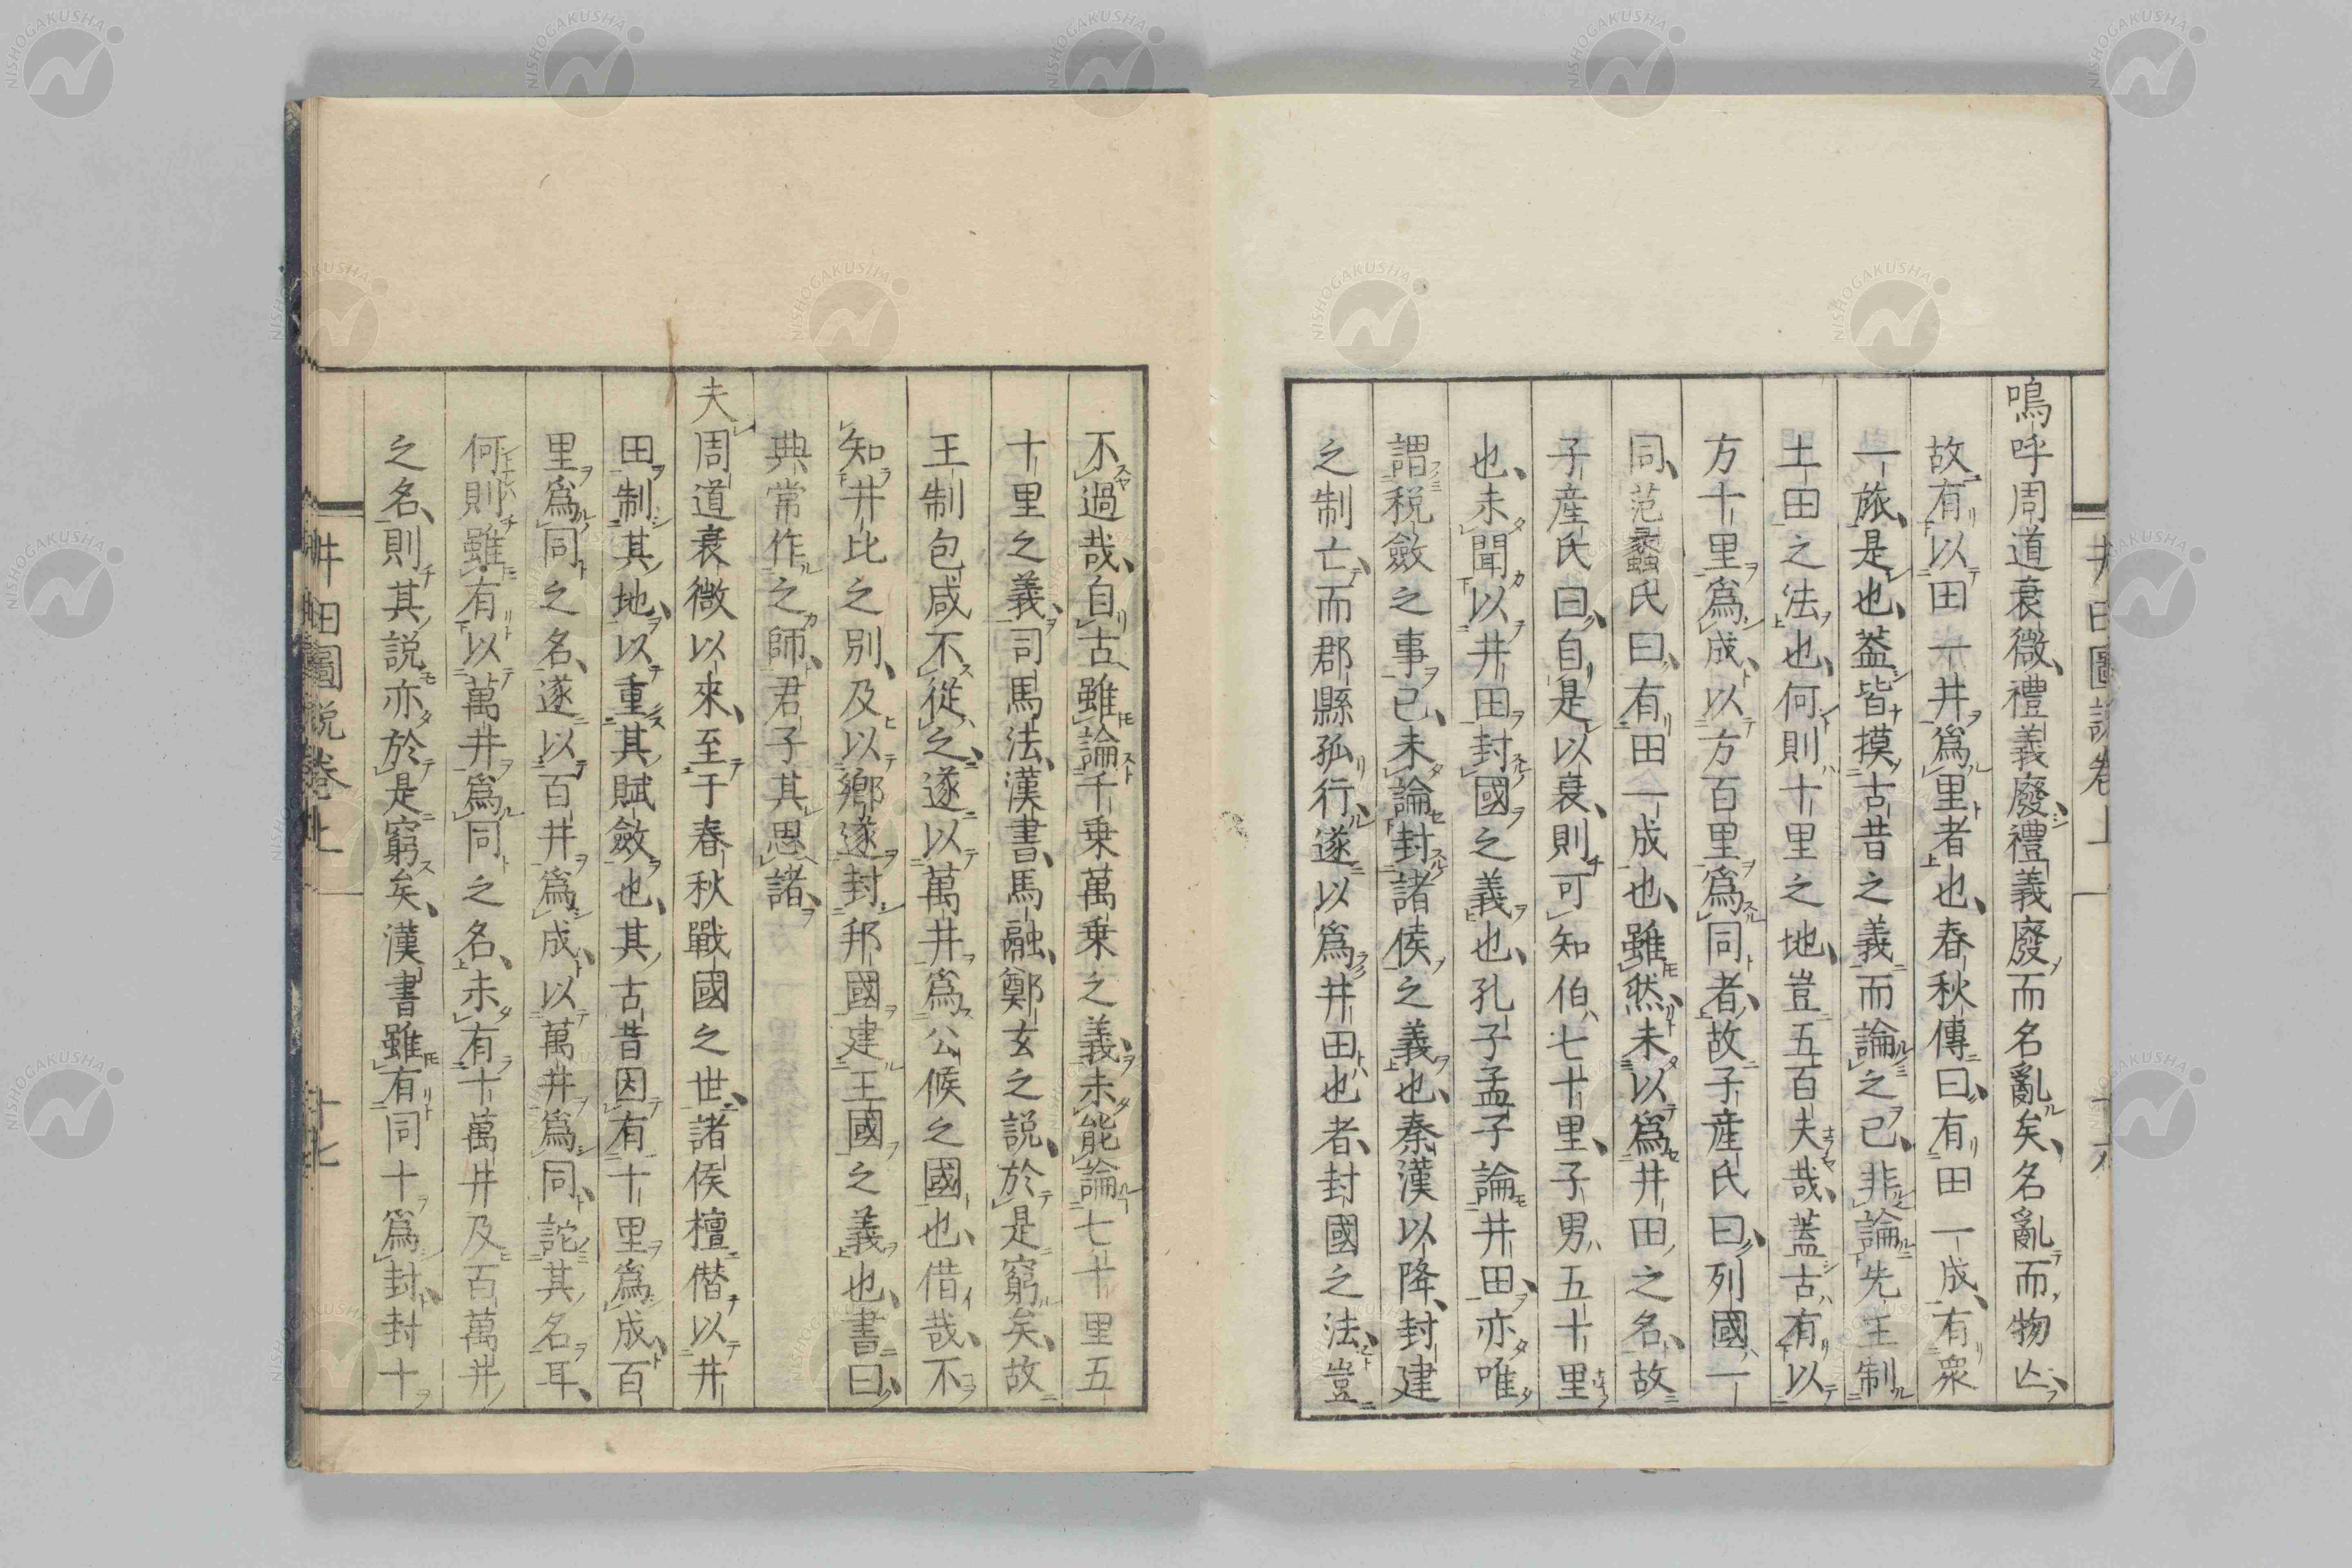 嗚呼周道衰微、禮義廢、禮義廢而名亂矣、名亂而物亾、
故有以田一井爲里者也、春秋傳曰、有田一成、有衆
一旅、是也、葢皆摸古昔之義而論之已、非論先王制
土田之法也、何則十里之地、豈五百夫哉、蓋古有以
方十里爲成、以方百里爲同者、故子産氏曰、列國一
同、范蠡氏曰、有田一成也、雖然、未以爲井田之名、故
子産氏曰、自是以衰、則可知伯七十里、子男五十里
也、未聞以井田封國之義也、孔子孟子論井田、亦唯
謂税斂之事已、未論封諸侯之義也、秦漢以降、封建
之制亡、而郡縣孤行、遂以爲井田也者、封國之法、豈
井田圖説卷上
不過哉、自古雖論千乗萬乗之義、未能論七十里五
十里之義、司馬法、漢書、馬融、鄭玄之説、於是窮矣、故
王制包咸不從之、遂以萬井爲公候之國也、借哉、不
知井比之別、及以鄉遂封邦國建王國之義也、書曰、
典常作之師、君子其思諸、
夫周道衰微以來、至于春秋戰國之世、諸侯檀僣以井
田制其地、以重其賦斂也、其古昔因有十里爲成、百
里爲同之名、遂以百井爲成、以萬井爲同、詑其名耳、
何則雖有以萬井爲同之名、未有十萬井及百萬井
之名、則其説亦於是窮矣、漢書雖有同十爲封、封十
井田圖説卷上
十七
NISHOGAKUSHA